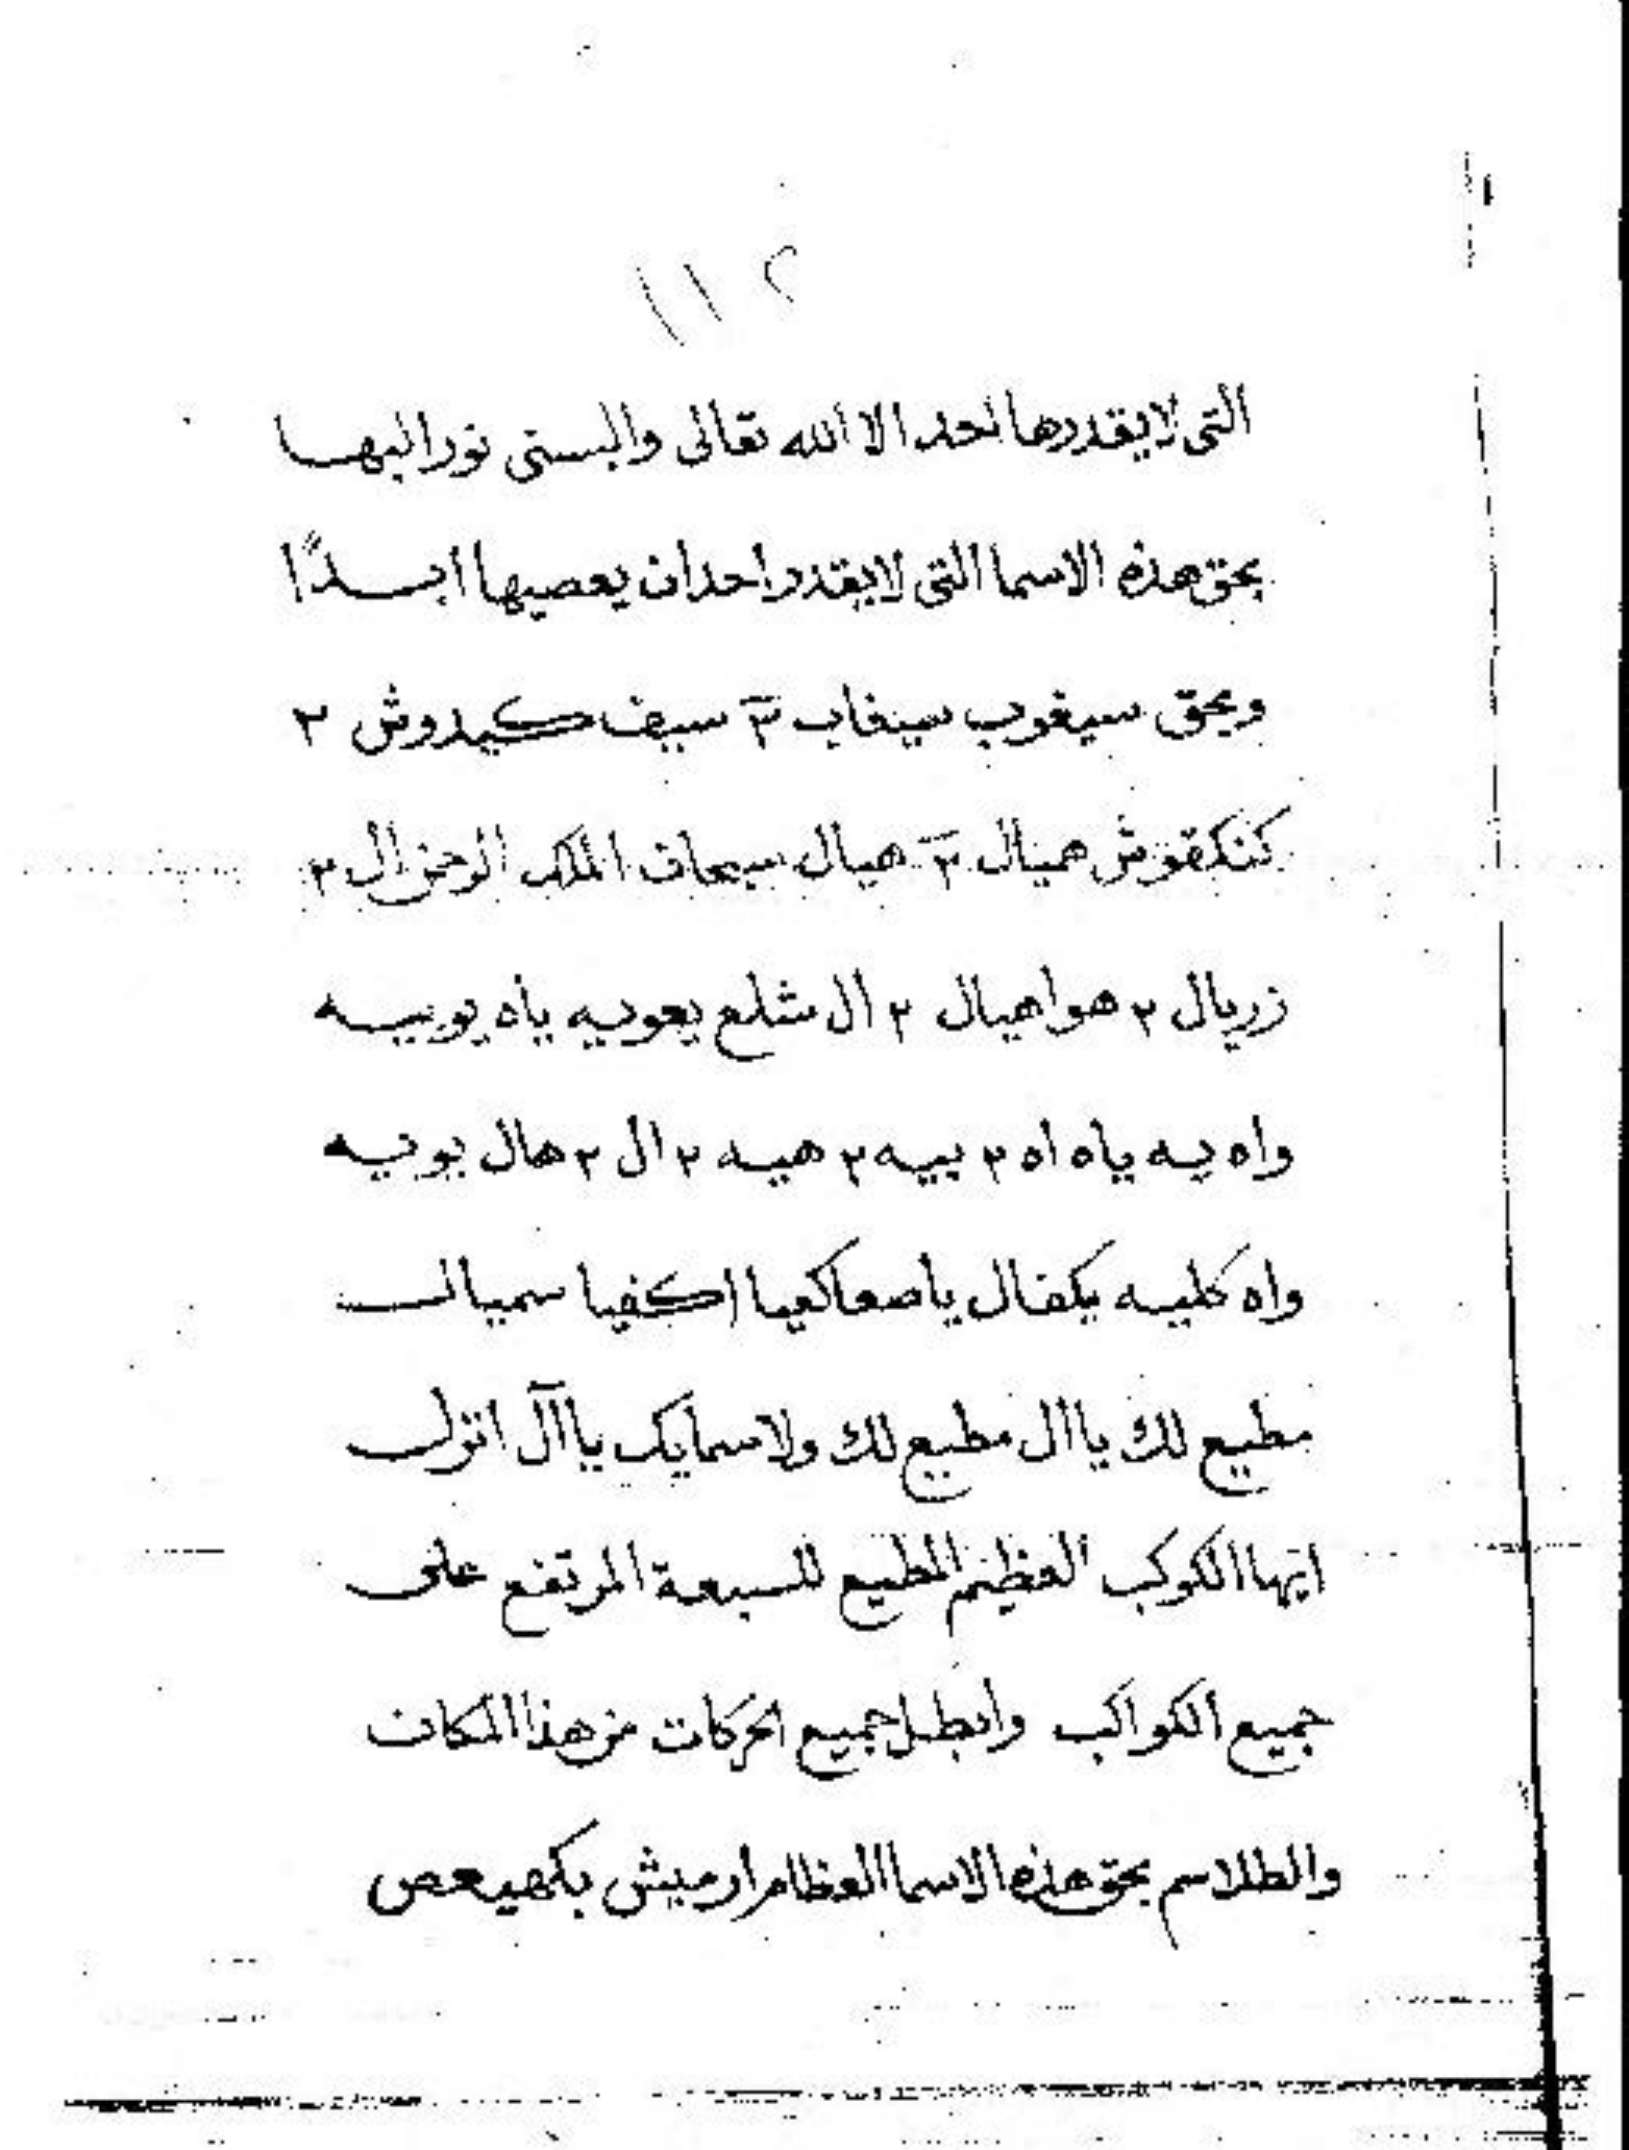 ١١٢
التى لايقدرها احد الا الله تعالى والبسنى نور البهـا
بحق هذه الاسما التى لايقدر احدان يعصيها ابـدًا
وبحق سيغوب سيغاب ٣ سيف كيدوش ٢
كنكقوش هميال ٣ هيال سبحان الملك الرحمن ال ٢
زريال ٢ هواهيال ٢ ال شلع يعويه ياه يوبيـه
واه يه ياه اه ٢ بيـه ٢ هيـه ٢ ال ٢ هال يويـه
واه كليـه يكفال ياصعاكعيا اكفيا سميالـ
مطيع لك ياال مطيع لك ولاسمايك ياآل انزلـ
ايها الكوكب العظيم المطيع للسبعة المرتفع على
جميع الكواكب وابطل جميع الحركات من هذا المكان
والطلاسم بحق هذه الاسما العظام ارميش بكهيعص